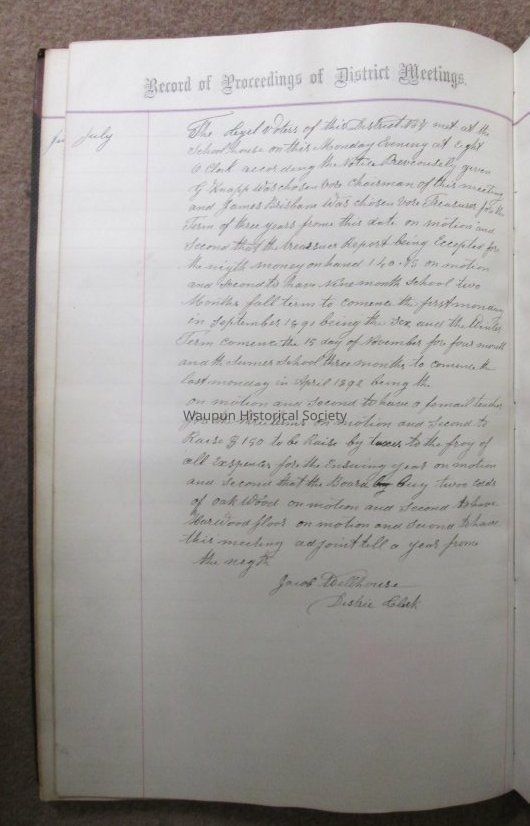 Record of Proceedings of District Meetings.
July
The Legel Voters of this District No 4 met at the
School house on this Monday Evening at Eight
O Clock according the Notice Previousely given
G Knapp Was chosen vore Chairman of this meeting
and James Brisbam Was chosen vore Treasurer for the
Term of three years frome this date on motion and
Second that the treassuer Report being Eccepted for
the nigth money on hand 140 on motion
and Second to have Nine month School two
Months fall term to comence the first monday
in September 1891 being the and the Winter
Term comence the 15 day of November for four month
and the Sumer School three months to comence the
last monday in April 1892 being the
on motion and Second to have a femail teacher
on motion and Second to
Raise $ 150 to be Raise by taxes to the of
all Exspences for the Ensuring year on motion
and Second that the Board buy twoo Cords
of oak Wood on motion and Second to have
Har Wood floor on motion and Second to have
this meeting adjoint till a year frome
the nigth
Jacob
Distric Clerk
Waupun Historical Society